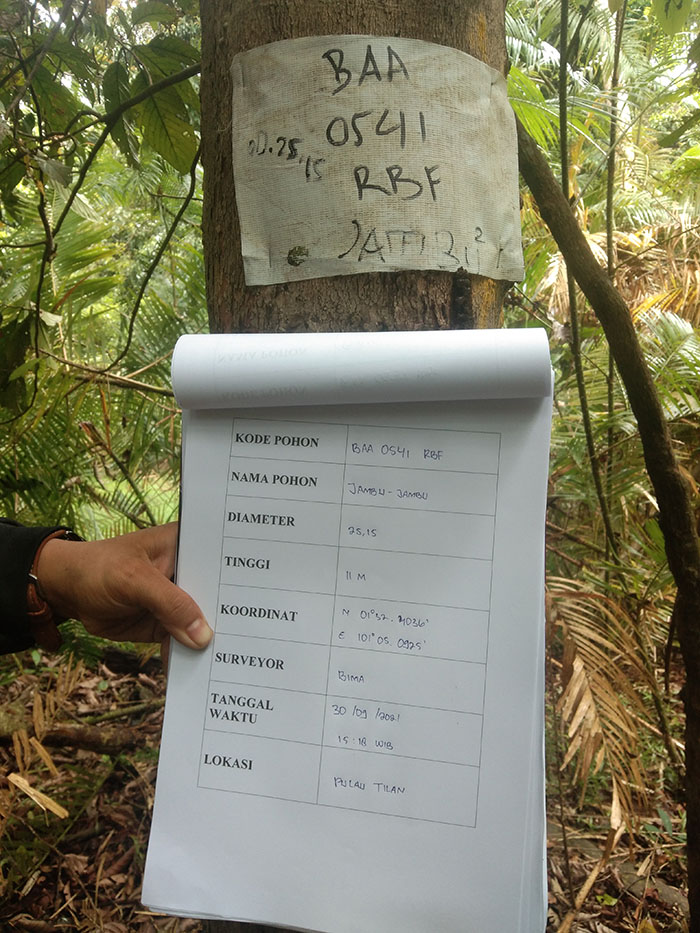 BAA
0541
RBF
JAMBU²
KODE POHON BAA 0541 RBF
NAMA POHON JAMBU-JAMBU
DIAMETER 25,15
TINGGI 11 M
KOORDINAT N 01°32.4036'
E 101°05.0925'
SURVEYOR BIMA
TANGGAL 30/09/2021
WAKTU 15:18 WIB
LOKASI PULAU TILAN